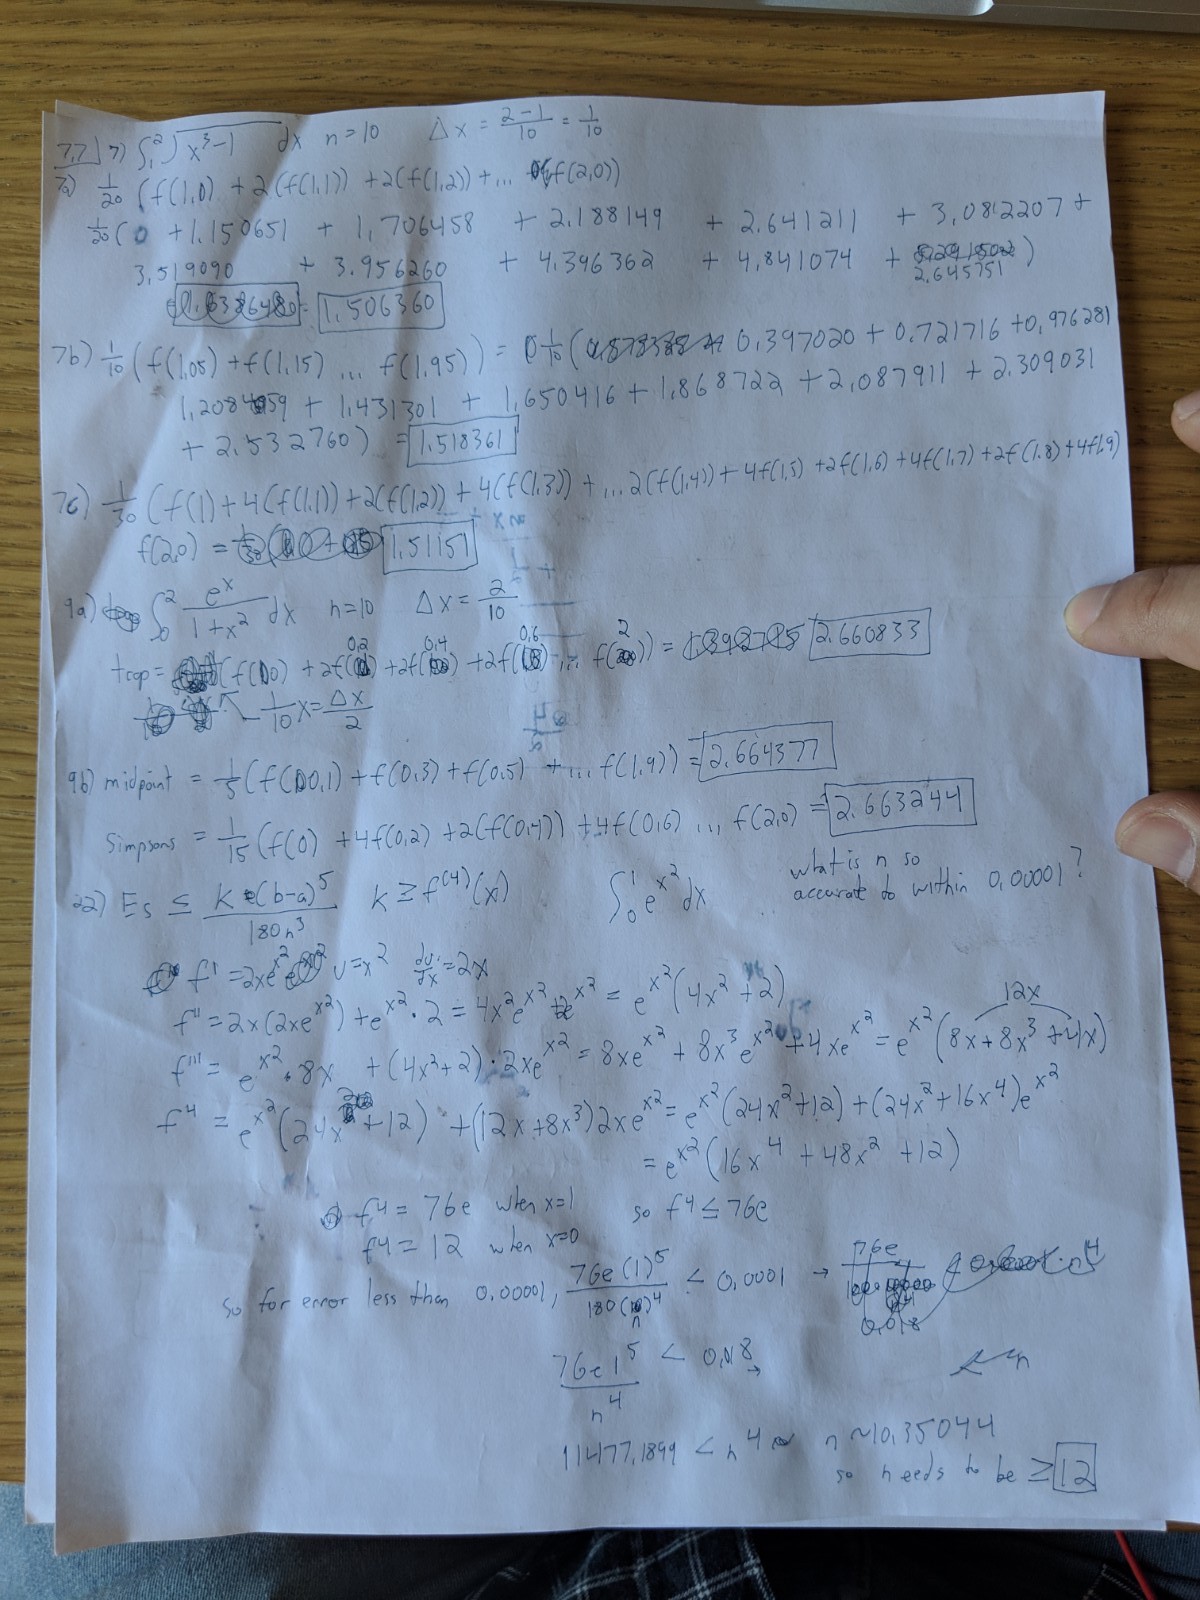 7.7 7) ∫₁² √(x³-1) dx n=10 Δx = (2-1)/10 = 1/10
7a) 1/20 (f(1,0) + 2(f(1,1)) + 2(f(1,2)) + ... f(2,0))
1/20 ( 0 + 1.150651 + 1,706458 + 2.188149 + 2.641211 + 3,0812207 +
3,519090 + 3.956260 + 4.396362 + 4,841074 + 2.645751 )
1,506360
7b) 1/10 (f(1,05) + f(1,15) ... f(1,95)) = 1/10 ( 0.397020 + 0.721716 + 0,976281
1,208459 + 1,431301 + 1,650416 + 1,868722 + 2,087911 + 2.309031
+ 2.532760) = 1,518361
7c) 1/30 (f(1) + 4(f(1,1)) + 2(f(1,2)) + 4(f(1,3)) + ... 2(f(1,4)) + 4f(1,5) + 2f(1,6) + 4f(1,7) + 2f(1,8) + 4f(1,9)
f(2,0) = 1,51151
9a) ∫₀² eˣ/(1+x²) dx n=10 Δx = 2/10
trap = (f(0) + 2f(0,2) + 2f(0,4) + 2f(0,6) ... f(2)) = 2.660833
1/10 x = Δx/2
9b) midpoint = 1/5 (f(0,1) + f(0,3) + f(0,5) + ... f(1,9)) = 2.664377
Simpsons = 1/15 (f(0) + 4f(0,2) + 2(f(0,4)) + 4f(0,6) ... f(2,0) = 2.663244
22) Es ≤ K(b-a)⁵/180n³ K ≥ f⁽⁴⁾(x) ∫₀¹ e^x² dx what is n so
accurate to within 0,00001?
f' = 2xe^x² u=x² du/dx = 2x
f'' = 2x(2xe^x²) + e^x² · 2 = 4x²e^x² + 2e^x² = e^x²(4x² + 2)
12x
f''' = e^x² · 8x + (4x²+2) · 2xe^x² = 8xe^x² + 8x³e^x² + 4xe^x² = e^x²(8x + 8x³ + 4x)
f⁴ = e^x²(24x² + 12) + (12x + 8x³)2xe^x² = e^x²(24x² + 12) + (24x² + 16x⁴)e^x²
= e^x²(16x⁴ + 48x² + 12)
f⁴ = 76e when x=1 so f⁴ ≤ 76e
f⁴ = 12 when x=0
so for error less than 0,00001, 76e(1)⁵/180(n)⁴ < 0,0001 → 76e
0,018
76e1⁵/n⁴ < 0,018 →
11477,1899 < n⁴ n ~ 10,35044
so n needs to be ≥ 12